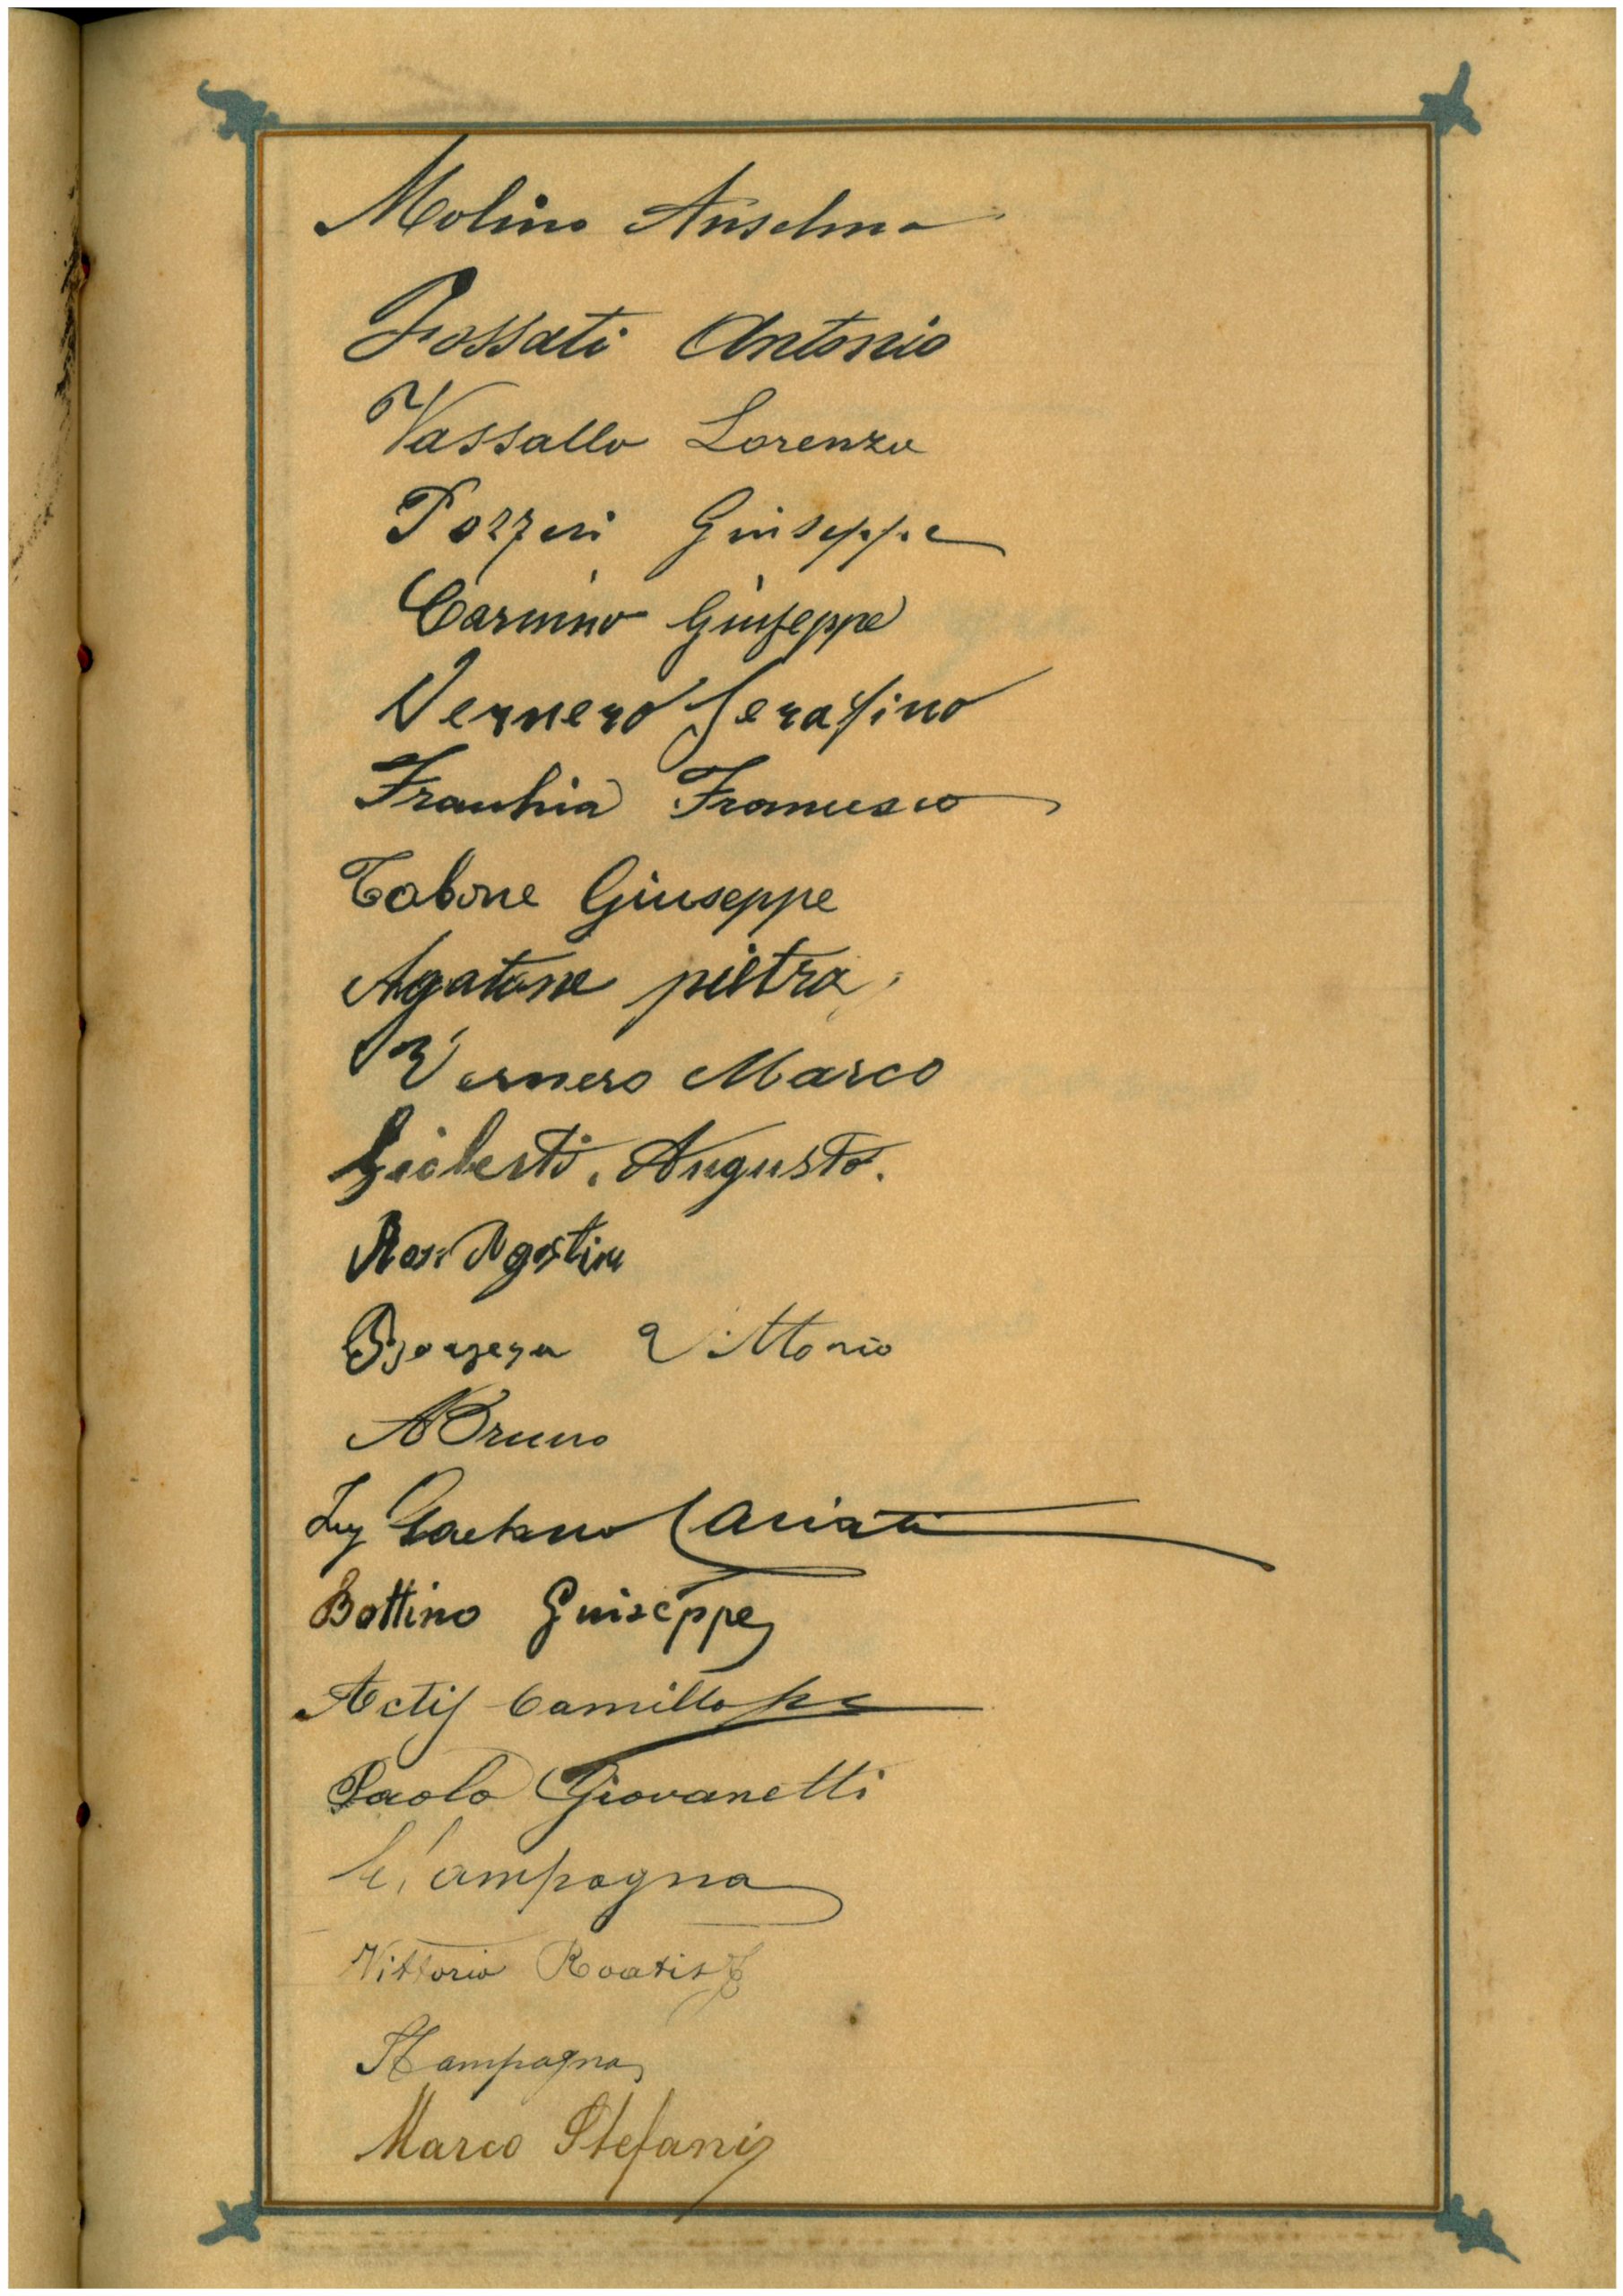 Molino Anselmo
Fossati Antonio
Vassallo Lorenzo
Pozzeri Giuseppe
Carmino Giuseppe
Vernero Serafino
Franchia Francesco
Tabone Giuseppe
Agatone pietra
Vernero Marco
Gioberti. Augusto.
Rossi Agostino
Vittorio
A Bruno
Ing Gaetano
Bottino Guiseppe
Actis Camillo
Paolo Giovanetti
C. Campagna
Vittorio Roatis
Campagna
Marco Stefani